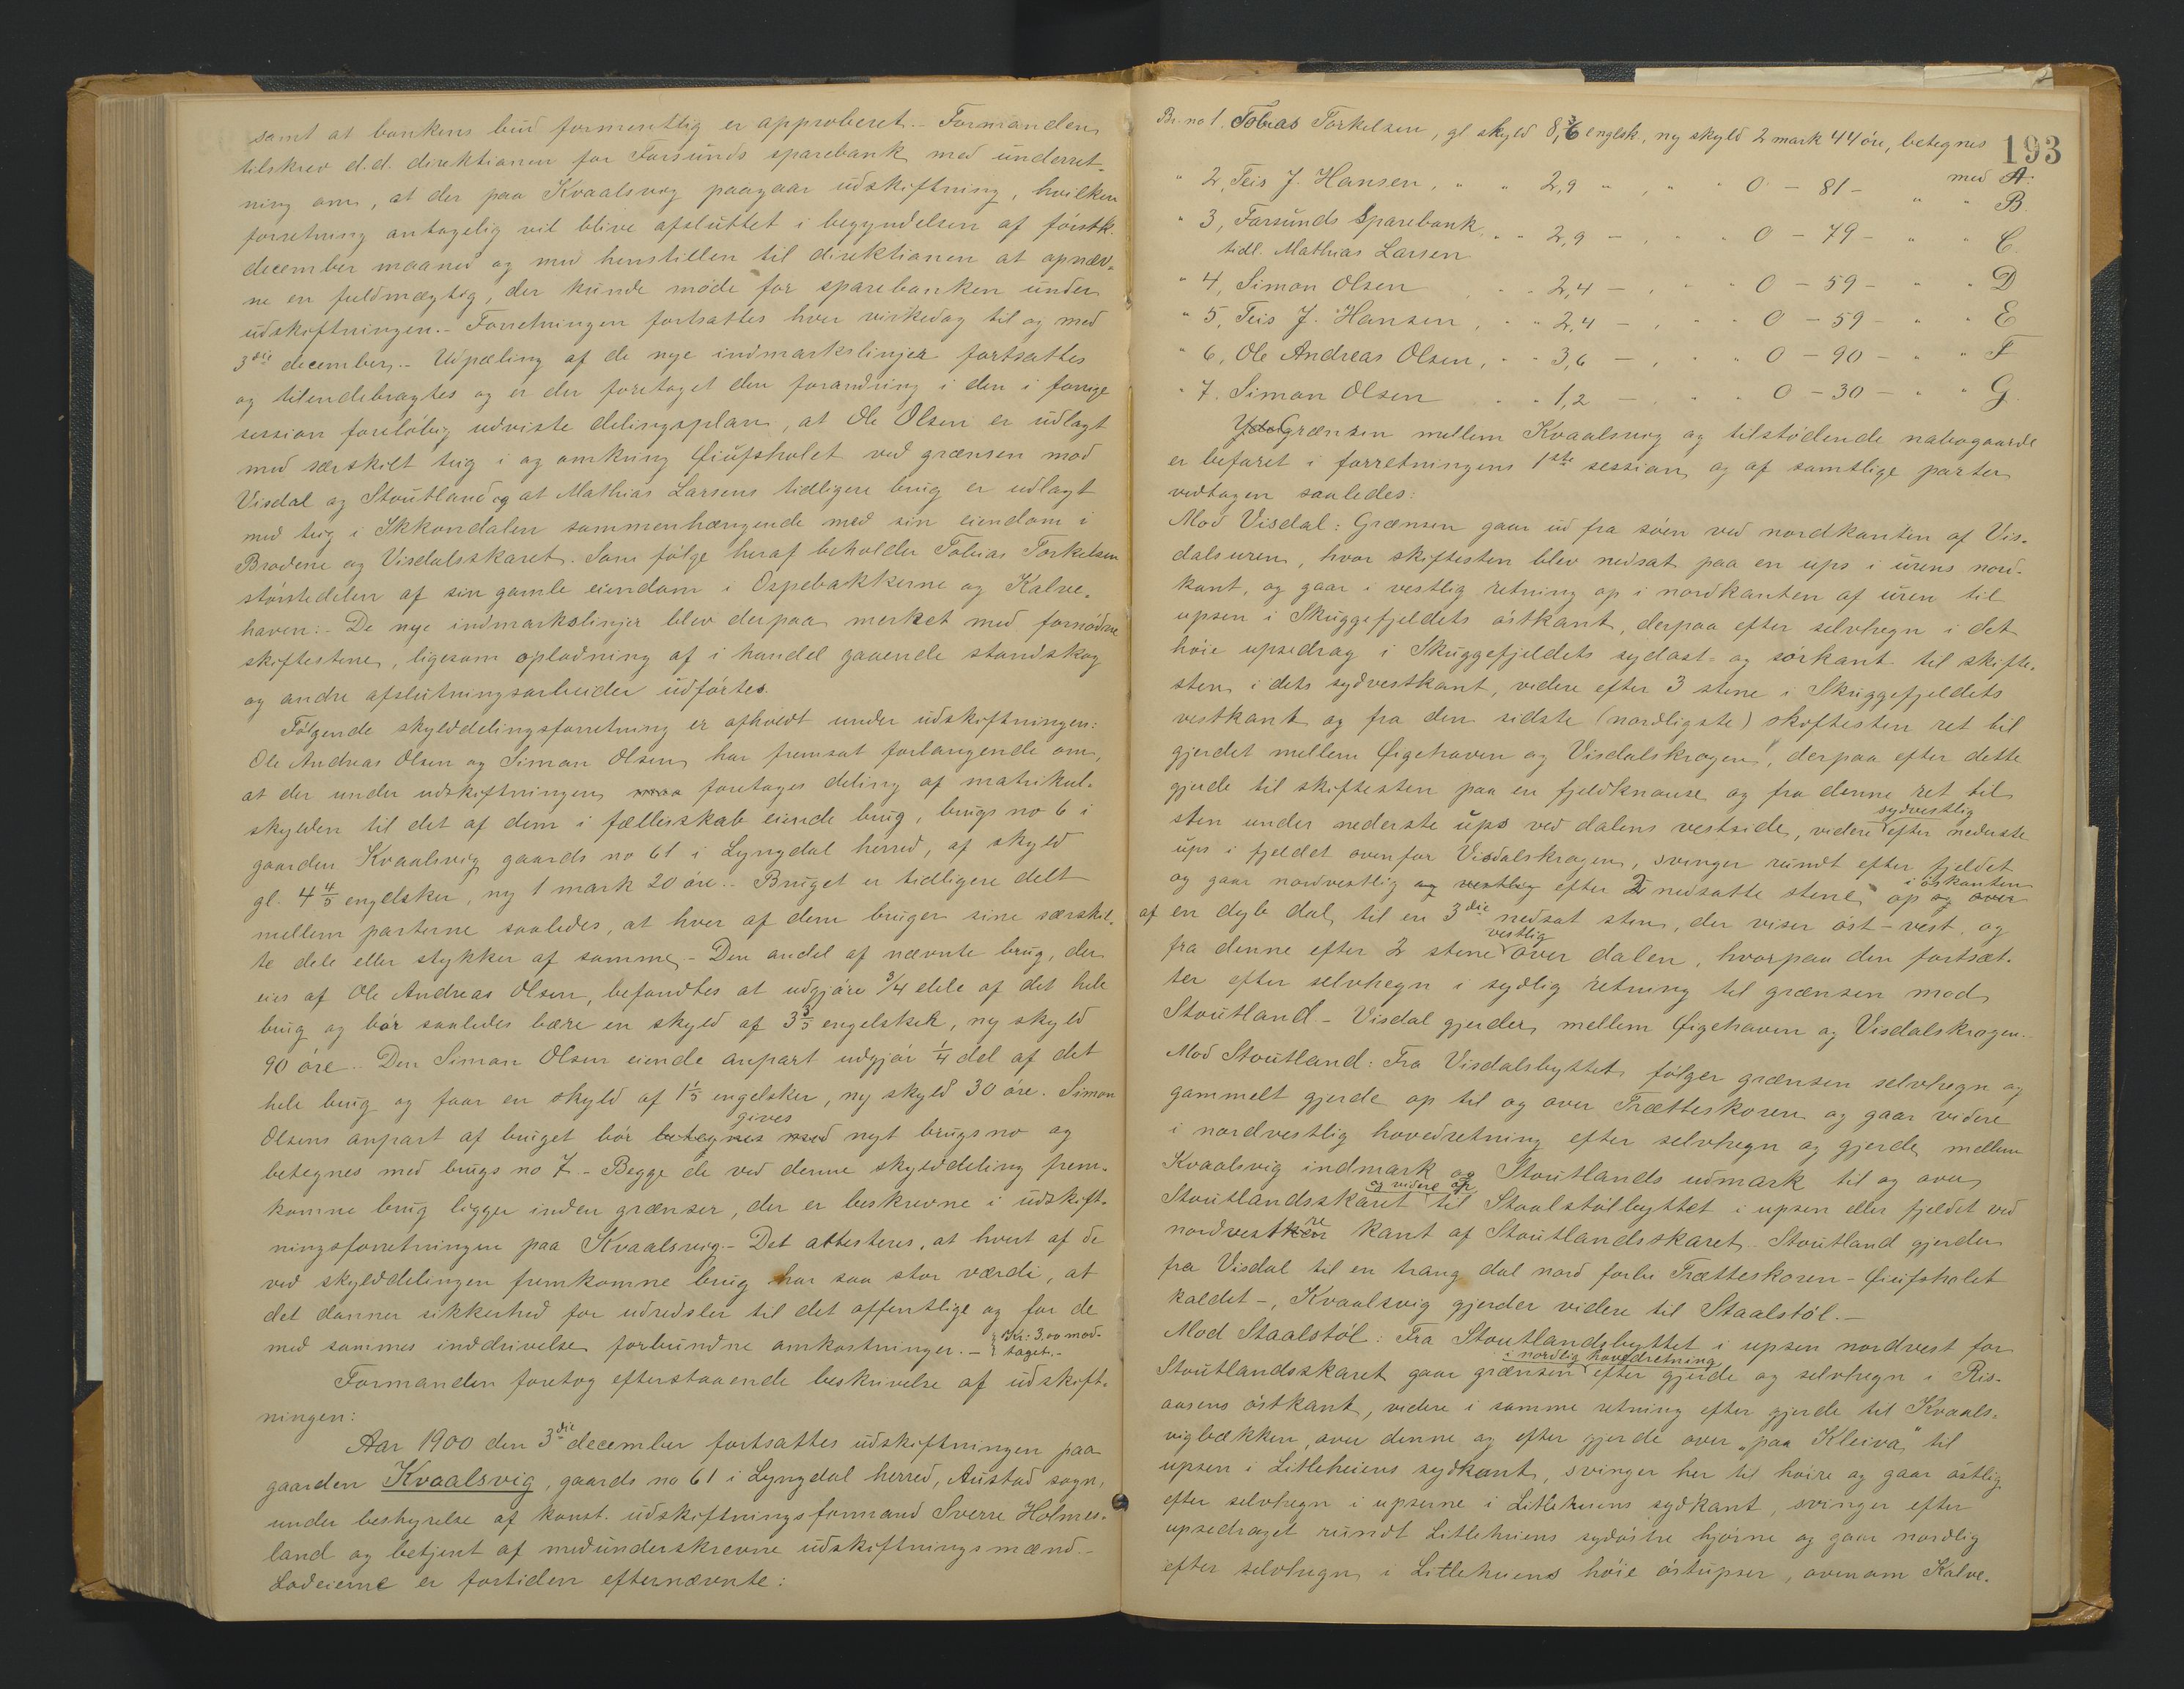 samt at bankens bud formentlig er approberet.- Formanden
tilskrev d.d. direktionen for Farsunds sparebank med underret-
ning om, at der paa Kvaalsvig paagaar udskiftning, hvilken
forretning antagelig vil blive afsluttet i begyndelsen af förstk.
december maaned og med henstillen til direktionen at opnæv-
ne en fuldmægtig, der kunde møde for sparebanken under
udskiftningen.- Forretningen fortsattes hver virkedag til og med
3die december.- Udpæling af de nye indmarkslinjer fortsattes
og tilendebragtes og er der foretaget den forandring i den i forrige
session foreløbig udviste delingsplan, at Ole Olsen er udlagt
med særskilt teig i og omkring Giufsholet ved grænsen mod
Visdal og Stoutland og at Mathias Larsens tidligere brug er udlagt
med teig i Ikkondalen sammenhængende med sin eiendom i
Brodene og Visdalsskaret. Som følge heraf beholder Tobias Torkelsen
störstedelen af sin gamle eiendom i Ospebakkerne og Kalve-
haven:- De nye indmarkslinjer blev derpaa merket med fornødne
skiftestene, ligesom opladning af i handel gaaende standskog
og andre afslutningsarbeider udførtes.
Følgende skylddelingsforretning er afholdt under udskiftningen:
Ole Andreas Olsen og Simon Olsen har fremsat forlangende om,
at der under udskiftningen maa foretages deling af matrikul-
skylden til det af dem i fællesskab eiende brug, brugs no 6 i
gaarden Kvaalsvig gaards no 61 i Lyngdal herred, af skyld
gl. 4 4/5 engelsker, ny 1 mark 20 öre.- Bruget er tidligere delt
mellem parterne saaledes, at hver af dem bruger sine særskil-
te dele eller stykker af samme.- Den andel af nævnte brug, der
eies af Ole Andreas Olsen, befandtes at udgjøre 3/4 dele af det hele
brug og bör saaledes bære en skyld af 3 3/5 engelsker, ny skyld
90 öre.- Den Simon Olsen eiende anpart udgjör 1/4 del af det
hele brug og faar en skyld af 1 1/5 engelsker, ny skyld 30 öre. Simon
gives
Olsens anpart af bruget bör betegnes med nyt brugsno og
betegnes med brugs no 7.- Begge de ved denne skylddeling frem-
komne brug ligger inden grænser, der er beskrevne i udskift-
ningsforretningen paa Kvaalsvig.- Det attesteres, at hvert af de
ved skylddelingen fremkomne brug har saa stor værdi, at
det danner sikkerhed for udredsler til det offentlige og for de
med sammes inddrivelse forbundne omkostninger.- Kr: 3,00 mod-
taget.-
Formanden foretog efterstaaende beskrivelse af udskift-
ningen:
Aar 1900 den 3die december fortsattes udskiftningen paa
gaarden Kvaalsvig, gaards no 61 i Lyngdal herred, Austad sogn,
under bestyrelse af konst. udskiftningsformand Sverre Holmes-
land og betjent af medunderskrevne udskiftningsmænd.-
Lodeierne er fortiden efternævnte:
193
Br. no 1, Tobias Torkelsen, gl skyld 8,6 englsk, ny skyld 2 mark 44 öre, betegnes
med A.
" 2, Teis J. Hansen, " " 2,9 " , " " 0 - 81 - " " B.
" 3, Farsunds Sparebank, " " 2,9 - , " " 0 - 79 - " " C.
tidl. Mathias Larsen
" 4, Simon Olsen " " 2,4 - , " " 0 - 59 - " " D
" 5, Teis J. Hansen, " " 2,4 - , " " 0 - 59 - " " E
" 6, Ole Andreas Olsen, " " 3,6 - , " " 0 - 90 - " " F
" 7. Simon Olsen " " 1,2 - , " " 0 - 30 - " " G.
Grænsen mellem Kvaalsvig og tilstödende nabogaarde
er befaret i forretningens 1ste session og af samtlige parter
vedtagen saaledes:
Mod Visdal: Grænsen gaar ud fra söen ved nordkanten af Vis-
dalsuren, hvor skiftesten blev nedsat paa en ups i urens nord-
kant, og gaar i vestlig retning op i nordkanten af uren til
upsen i Skuggefjeldets östkant, derpaa efter selvhegn i det
höie upsedrag i Skuggefjeldets sydost- og sörkant til skifte-
sten i dets sydvestkant, videre efter 3 stene i Skuggefjeldets
vestkant og fra den sidste (nordligste) skiftesten ret til
gjerdet mellem Øigehaven og Visdalskrogen, derpaa efter dette
gjerde til skiftesten paa en fjeldknause og fra denne ret til
sydvestlig
sten under nederste ups ved dalens vestside, videre efter nederste
ups i fjeldet ovenfor Visdalskrogen, svinger rundt efter fjeldet
i öskanten
og gaar nordvestlig og vestlig efter 2 nedsatte stene op og over
af en dyb dal til en 3die nedsat sten, der viser öst-vest, og
vestlig
fra denne efter 2 stene over dalen, hvorpaa den fortsæt-
ter efter selvhegn i sydlig retning til grænsen mod
Stoutland - Visdal gjerder mellem Øigehaven og Visdalskrogen.-
Mod Stoutland: Fra Visdalsbyttet følger grænsen selvhegn og
gammelt gjerde op til og over Trætteskoren og gaar videre
i nordvestlig hovedretning efter selvhegn og gjerde mellem
Kvaalsvig indmark og Stoutlands udmark til og over
og videre op
Stoutlandsskaret til Staalstölbyttet i upsen eller fjeldet ved
nordvestre kant af Stoutlandsskaret. Stoutland gjerder
fra Visdal til en trang dal nord forbi Trætteskoren - Giufsholet
kaldet -, Kvaalsvig gjerder videre til Staalstöl.-
Mod Staalstöl: Fra Stoutlandsbyttet i upsen nordvest for
i nordlig hovedretning
Stoutlandsskaret gaar grænsen efter gjerde og selvhegn i Ris-
aasens östkant, videre i samme retning efter gjerde til Kvaals-
vigbækken, over denne og efter gjerde over "paa Kleiva" til
upsen i Litleheiens sydkant, svinger her til höire og gaar östlig
efter selvhegn i upserne i Litleheiens sydkant, svinger efter
upsedraget rundt Litleheiens sydöstre hjörne og gaar nordlig
efter selvhegn i Litleheiens höie östupser, ovenom Kalve-